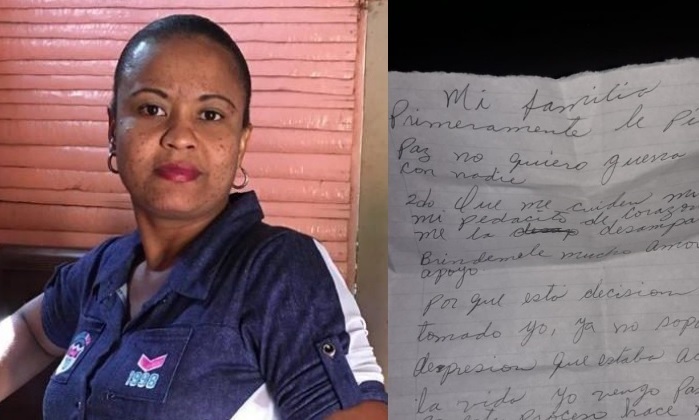 1998
Mi familia
Primeramente le
Paz no quiero guerra
con nadie
2do Que me cuiden
mi pedacito de Corazon
me la desampa
Brindemele mucho Amor
apoyo
Por que esta decision
tomado yo, ya no sopo
depresion que estaba a
la vida yo vengo Pa